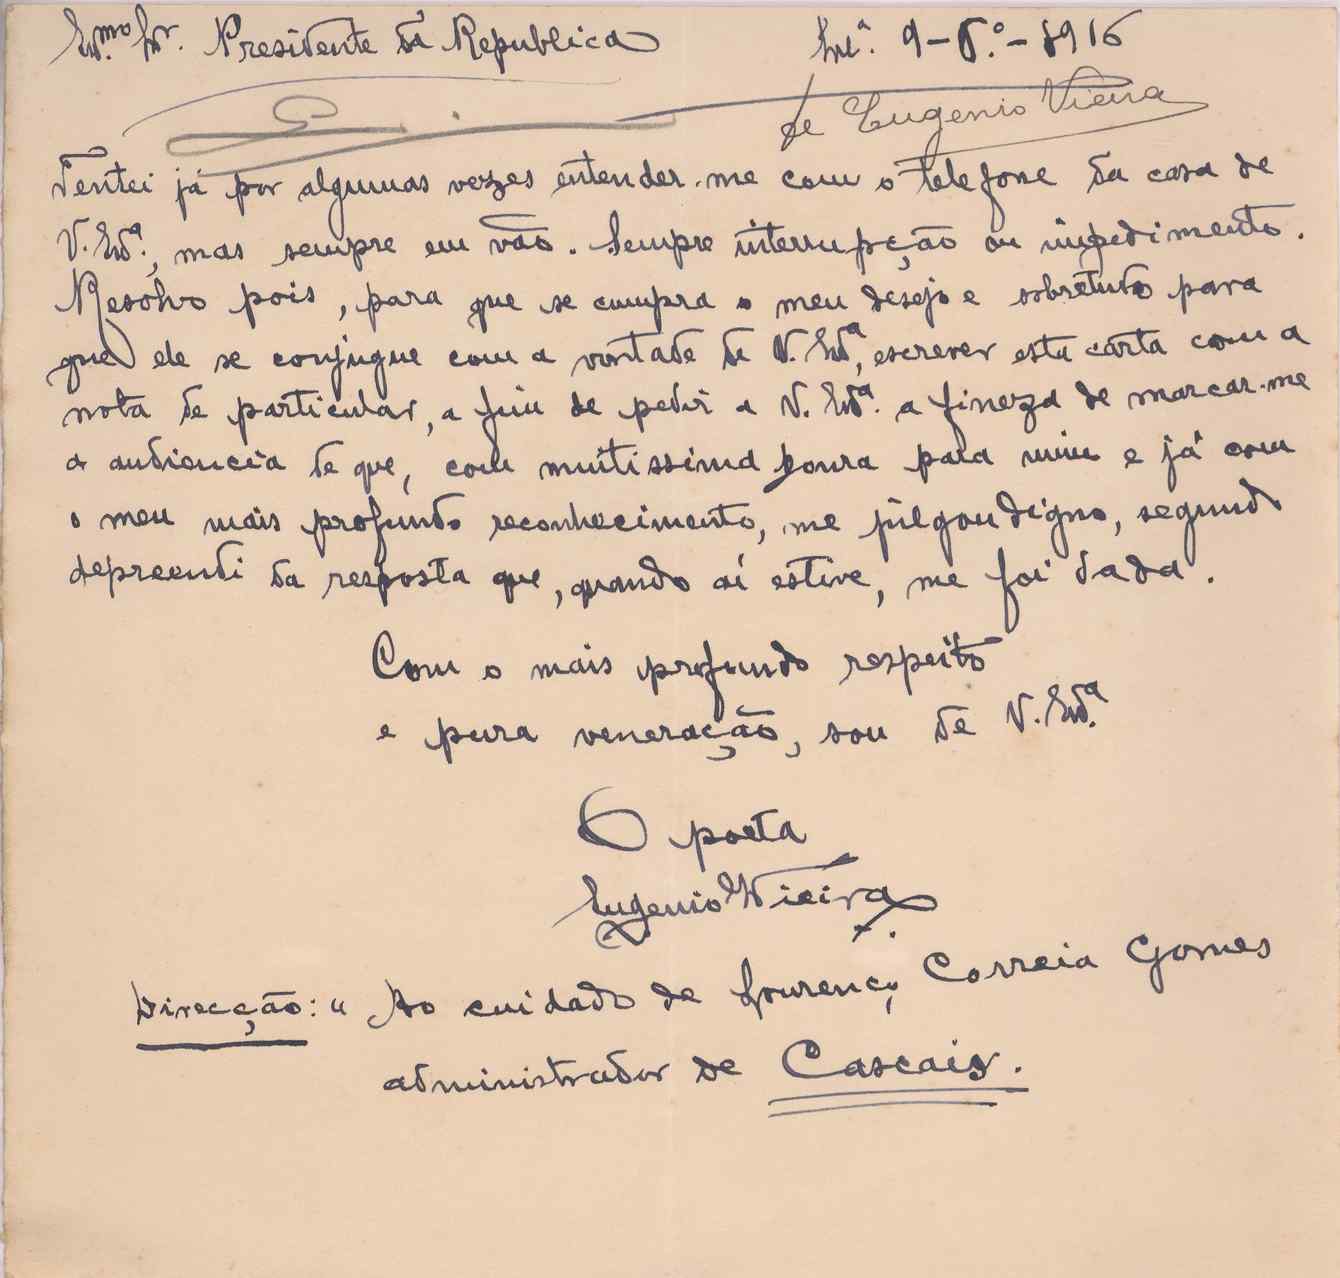 Ex.mo Sr. Presidente da Republica 9-5.º-1916
de Eugenio Vieira
Tentei já por algumas vezes entender-me com o telefone da casa de
V. Exª., mas sempre em vão. Sempre interrupção ou impedimento.
Resolvo pois, para que se cumpra o meu desejo e sobretudo para
que ele se conjugue com a vontade de V. Exª, escrever esta carta com a
nota de particular, a fim de pedir a V. Exª. a fineza de marcar-me
a audiencia de que, com muitissima honra para mim e já com
o meu mais profundo reconhecimento, me julgou digno, segundo
depreendi da resposta que, quando aí estive, me foi dada.
Com o mais profundo respeito
e pura veneração, sou de V. Exª.
O poeta
Eugenio Vieira
Direcção: " Ao cuidado de Lourenço Correia Gomes
administrador de Cascais.